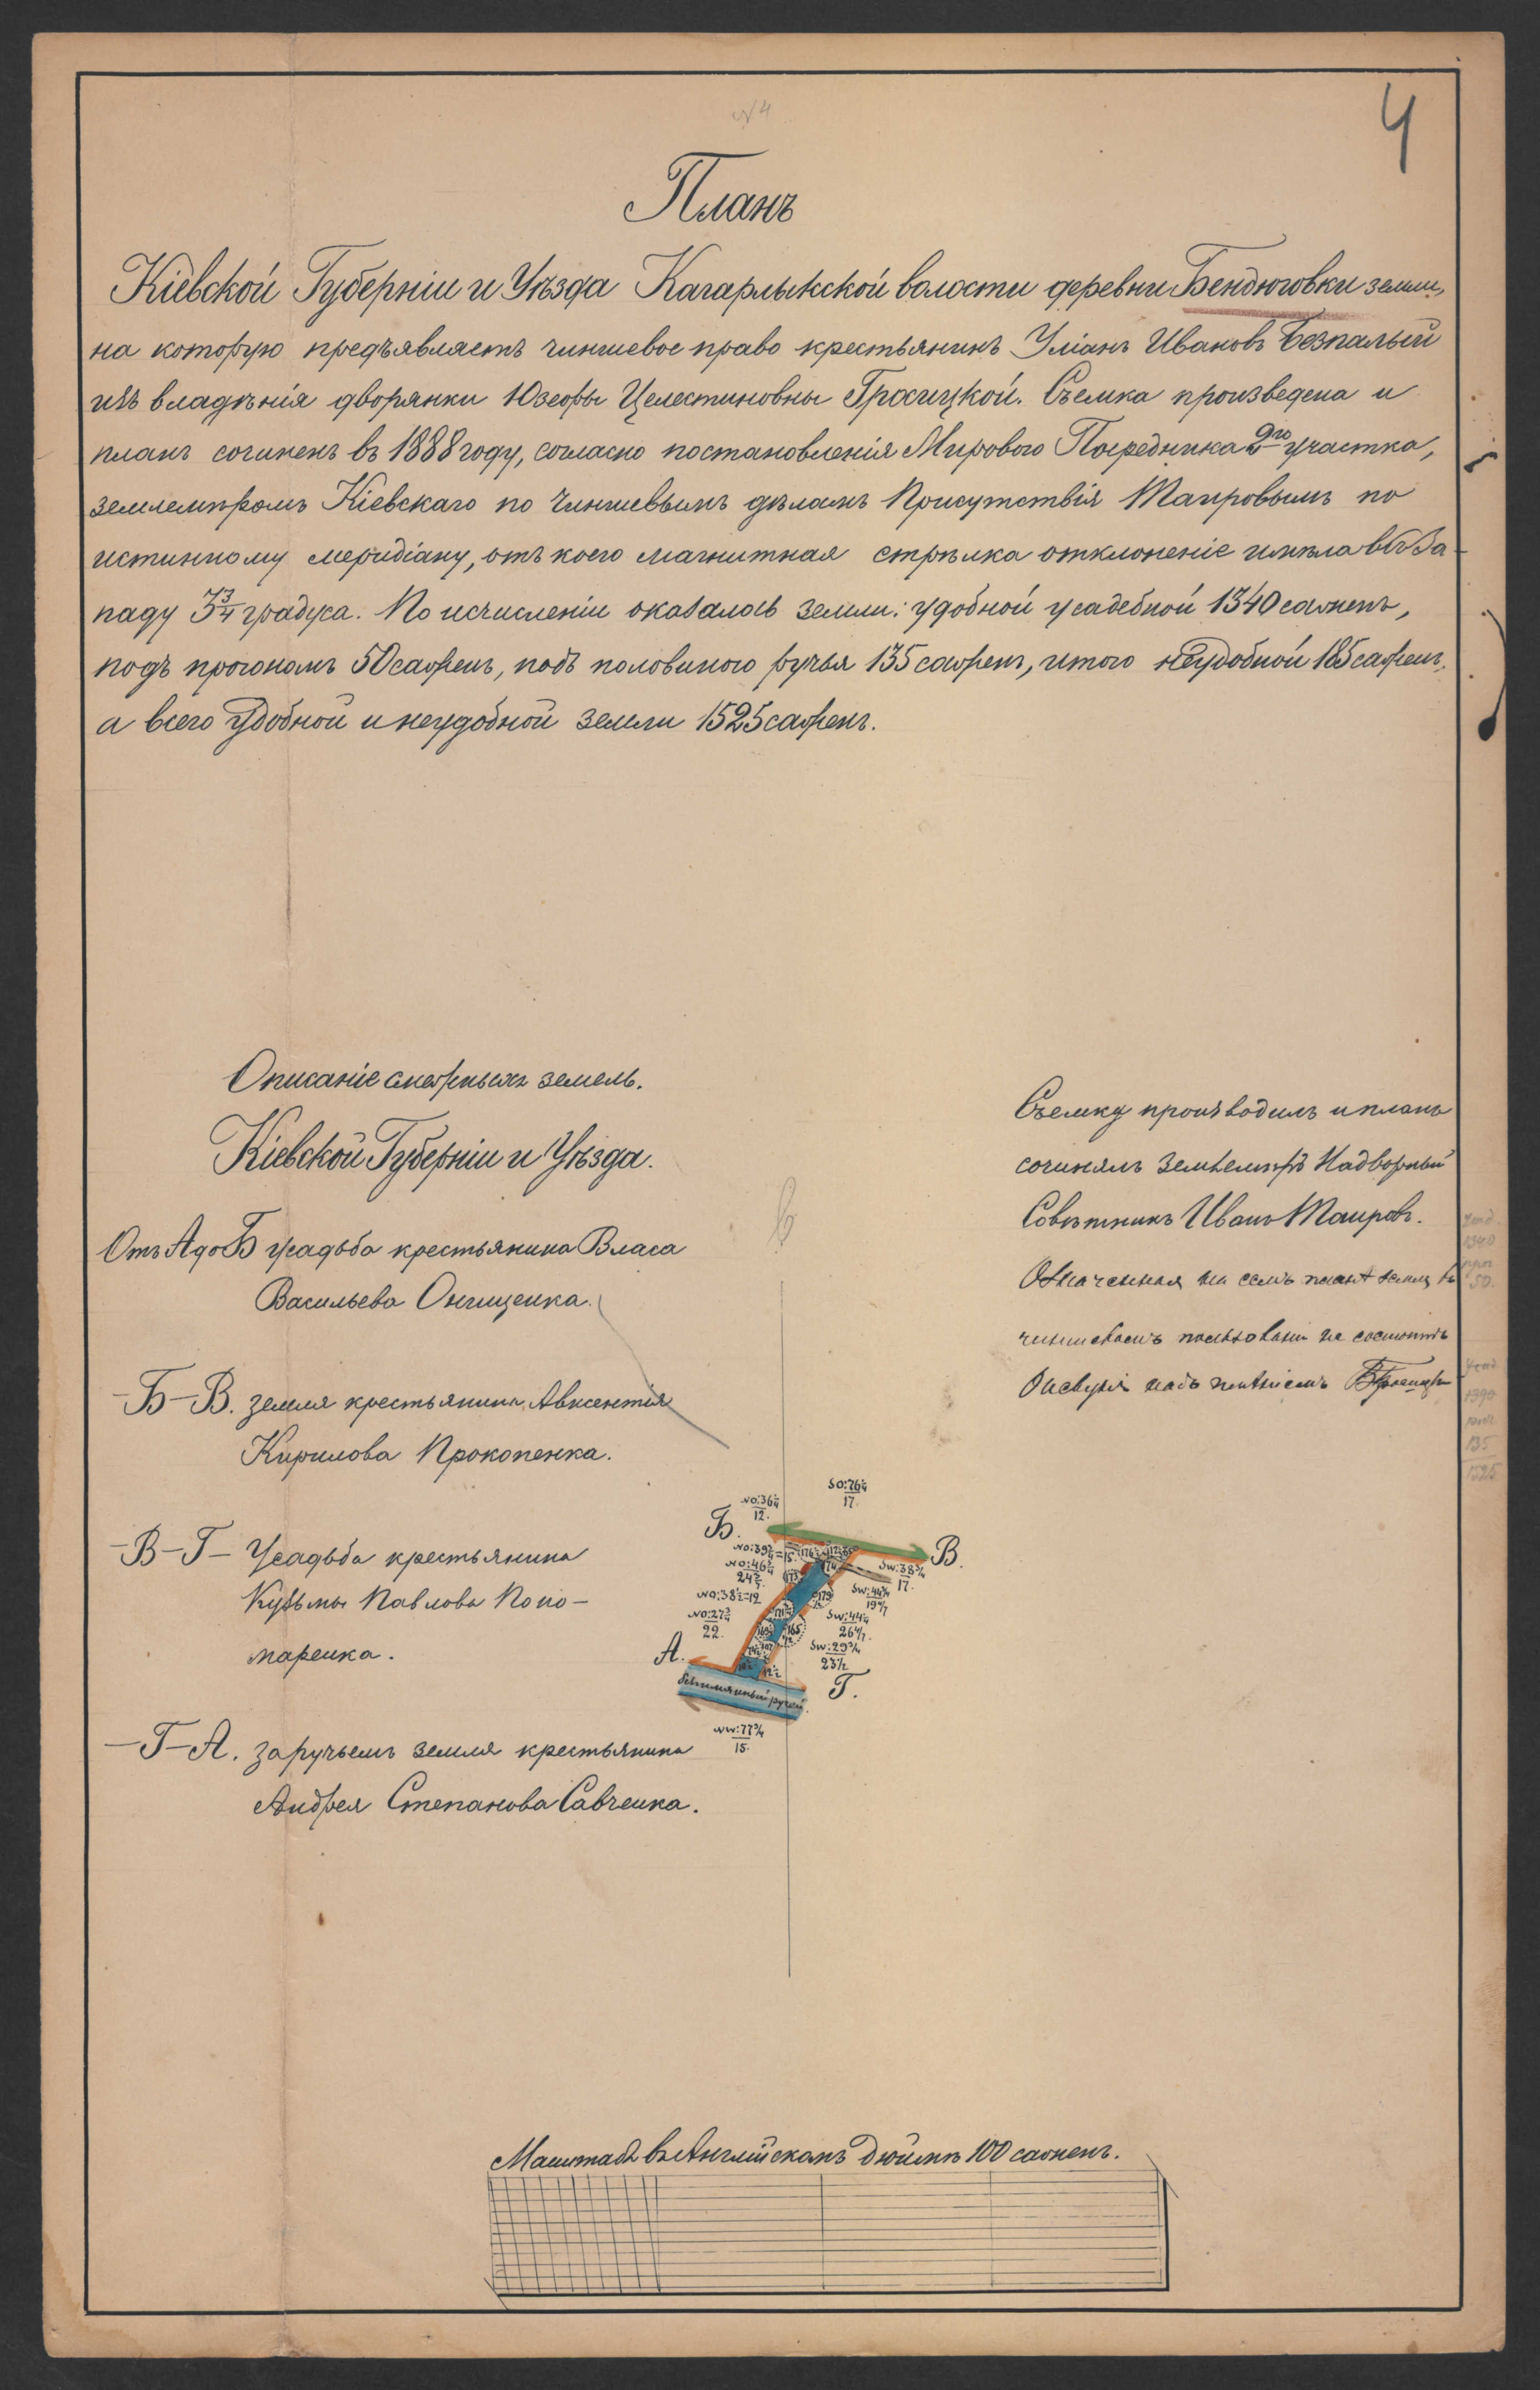 № 4
4
Планъ
Кіевской Губерніи и Уѣзда Кагарлыкской волости деревни Бендюговки земли,
на которую предъявляетъ чиншевое право крестьянинъ Уліанъ Ивановъ Безпалый
изъ владѣнія дворянки Юзефы Целестиновны Гросицкой. Съемка произведена и
планъ сочиненъ въ 1888 году, согласно постановленія Мироваго Посредника 2го участка,
землемѣромъ Кіевскаго по чиншевымъ дѣламъ Присутствія Таировымъ по
истинному меридіану, отъ коего магнитная стрѣлка отклоненіе имѣла къ За-
паду 3¾ градуса. По исчисленіи оказалось земли: удобной усадебной 1340 сажень,
подъ прогономъ 50 сажень, подъ половиною ручья 135 сажень, итого неудобной 185 сажень,
а всего удобной и неудобной земли 1525 сажень.
Описаніе смежныхъ земель.
Кіевской Губерніи и Уѣзда.
Отъ А до Б усадьба крестьянина Власа
Васильева Онищенка.
—Б—В. земля крестьянина Авксентія
Кирилова Прокопенка.
—В—Г— Усадьба крестьянина
Кузьмы Павлова Поно-
маренка.
—Г—А. за ручьемъ земля крестьянина
Андрея Степанова Савченка.
Съемку производилъ и планъ
сочинялъ землемѣръ Надворный
Совѣтникъ Иванъ Таировъ.
Означенная на семъ планѣ земля въ
чиншевомъ пользованіи не состоитъ
1340
50
1390
135
1525
SO:76¼
17.
NO:36¼
12.
Б.
В.
NO:39¾=15
NO:46¾
24
NO:38½=12
NO:27¾
22.
SW:38¾
17.
SW:44¼
SW:44¼
SW:29¾
23½
А.
Г.
безъимянный ручей.
NW:77¾
15.
Масштабъ въ Англійскомъ дюймѣ 100 саженъ.